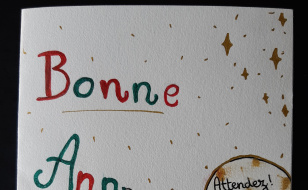 Bonne
Attendez!